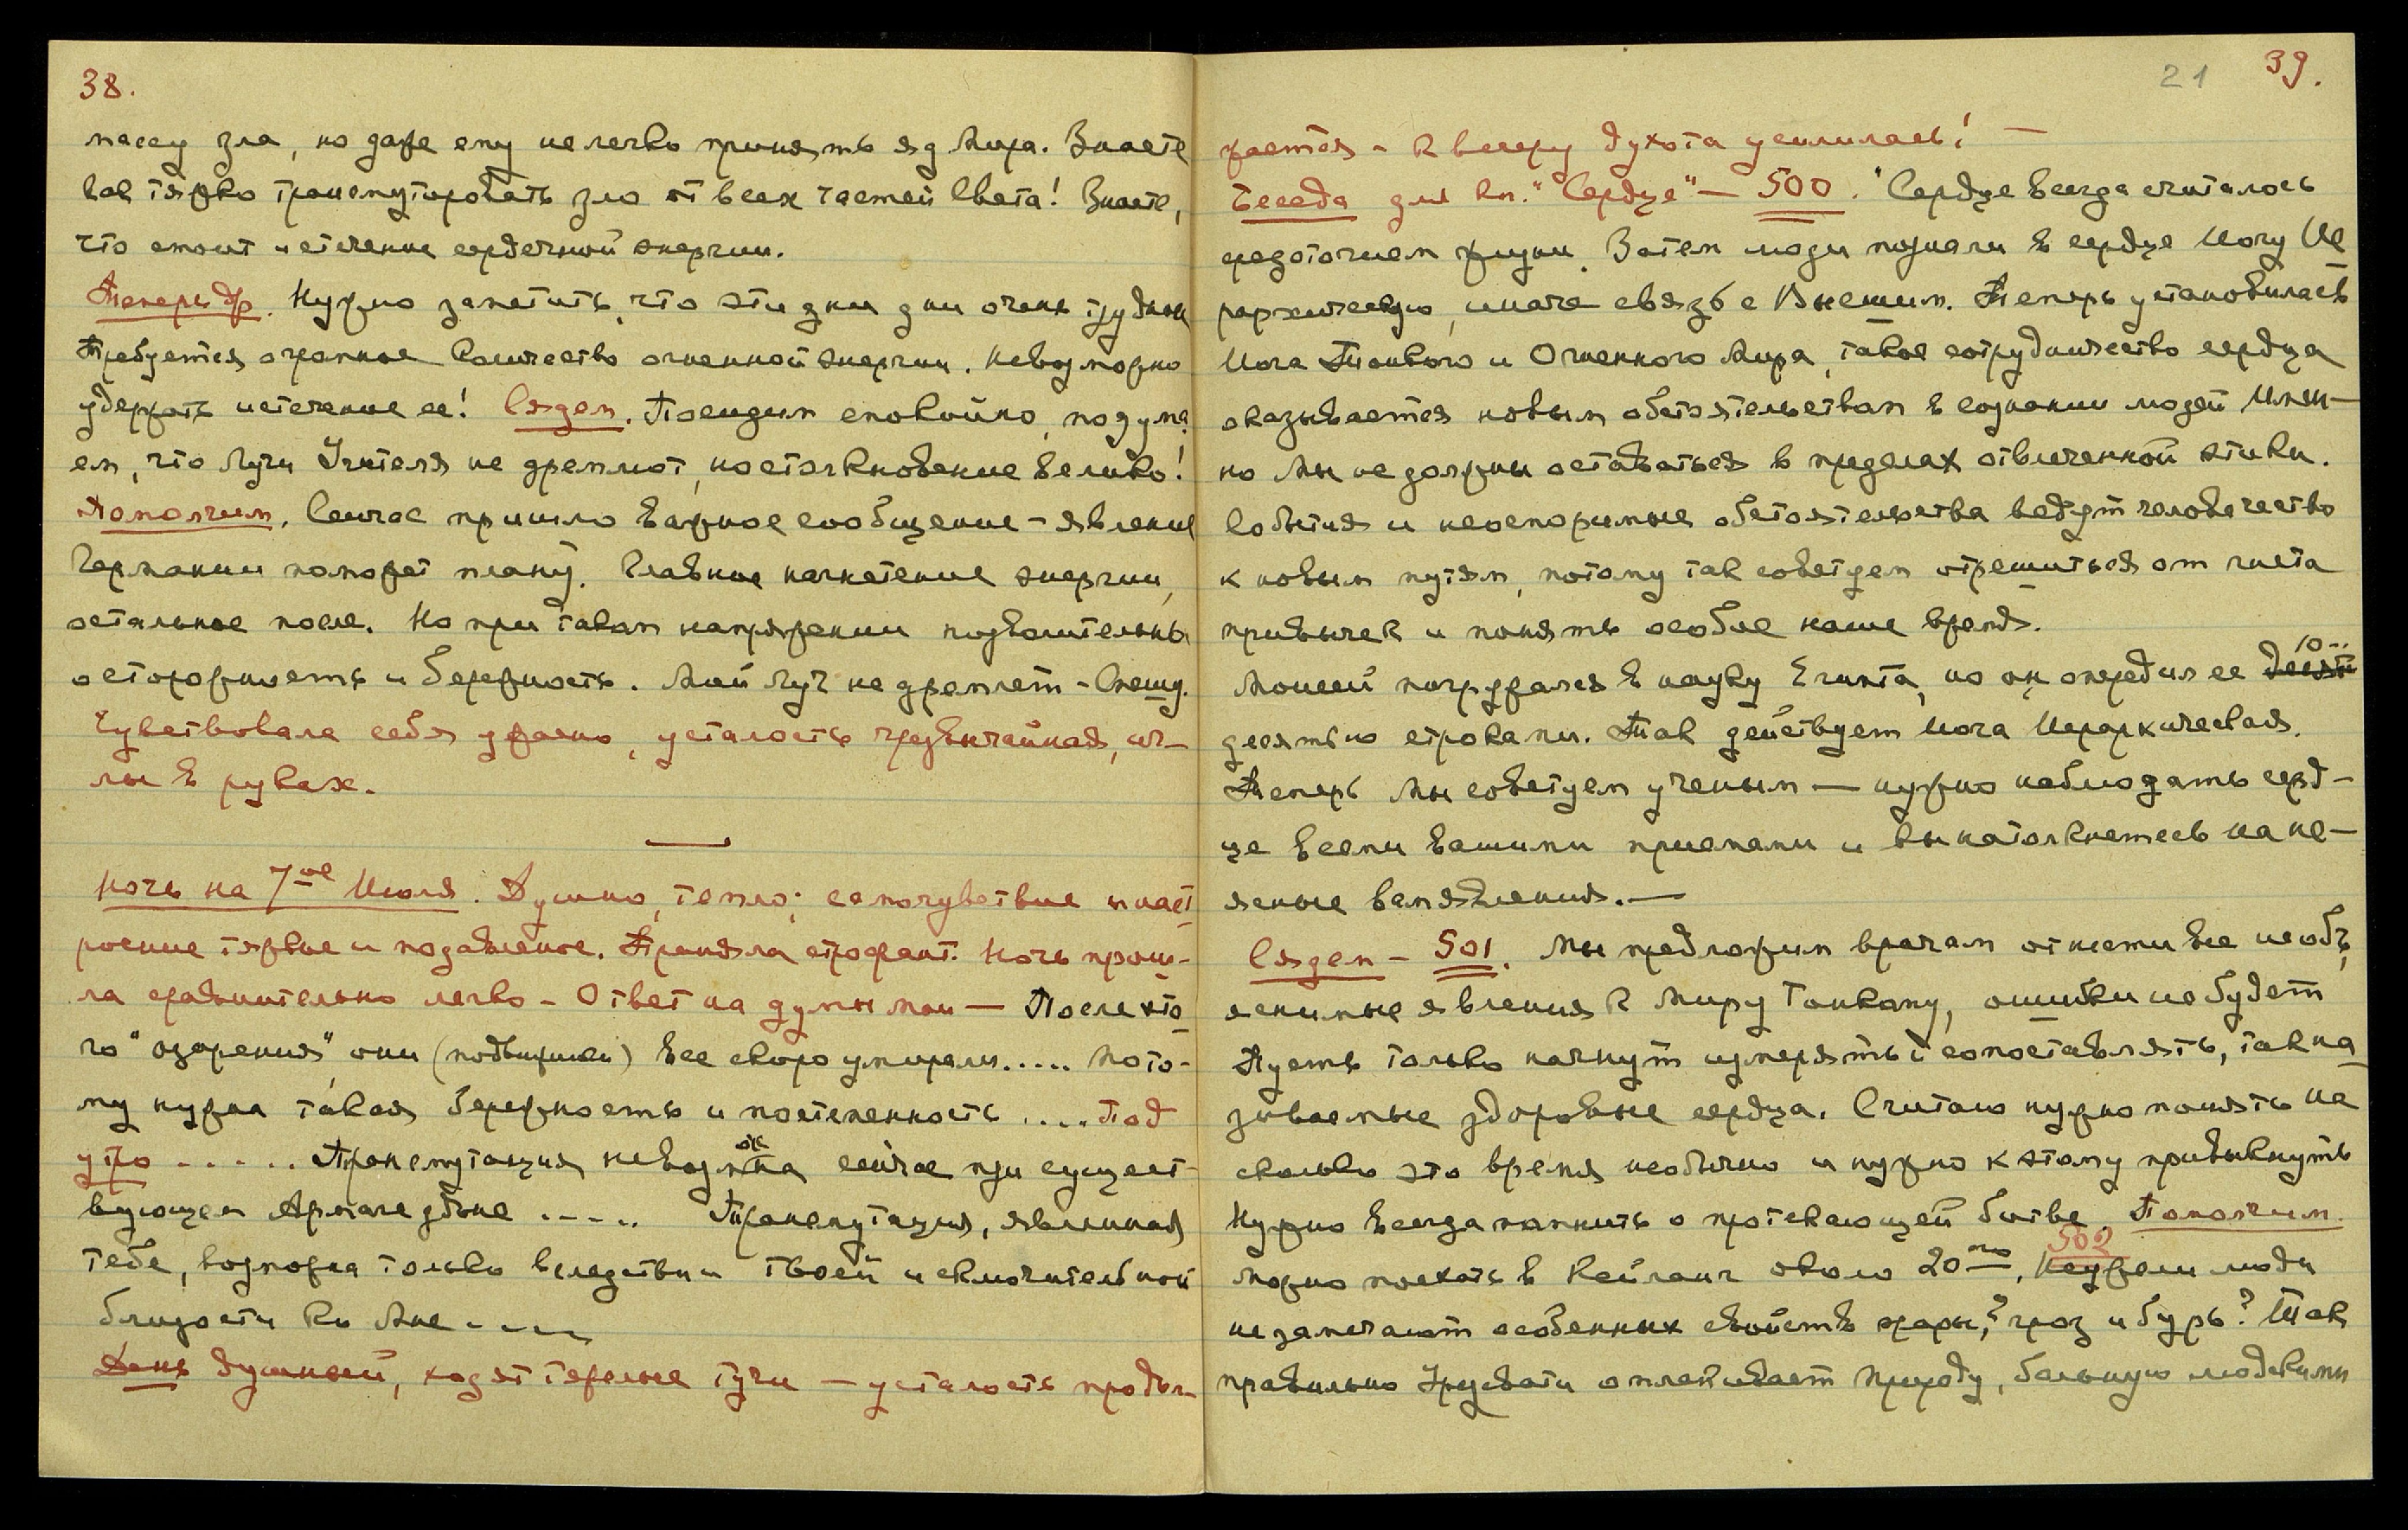 38.
массу зла, но даже ему не легко принять яд Мира. Знаете
как тяжко трансмутировать зло от всех частей Света! Знаете,
что стоит истечение сердечной энергии.
Теперь др. Нужно заметить, что эти дни дни очень трудны
Требуется огромное Количество огненной энергии. Невозможно
удержать истечение ее! Сядем. Посидим спокойно, подума
ем, что Лучи Учителя не дремлют, но столкновение велико!
Помолчим. Сейчас пришло важное сообщение - явление
Германии поможет плану. Главное нагнетение энергии,
остальное после. Но при таком напряжении нужна
осторожность и бережность. Мой Луч не дремлет - Спешу.
Чувствовала себя ужасно, усталость чрезвычайная, иг-
лы в руках.
Ночь на 7ое Июля. Душно, тепло; самочувствие и наст
роение тяжкое и подавленное. Приняла строфант. Ночь прош-
ла сравнительно легко - Ответ на думы мои — После это
го "озарения" они (подвижники) все скоро умирали..... Пото-
му нужна такая бережность и постепенность .... Под
утро ..... Трансмутация невозможна сейчас при сущест-
вующем Армагеддоне ..... Трансмутация, явленная
тебе, возможна только вследствии твоей исключительной
близости Ко Мне ----
День душный, ходят тяжелые тучи — усталость продол-
21 39.
жается - К вечеру духота усилилась! —
Беседа для кн. "Сердце" — 500. "Сердце всегда считалось
средоточием жизни. Затем люди познали в сердце Йогу Ие
рархическую, иначе связь с Высшим. Теперь установилась
Йога Тонкого и Огненного Мира, такое сотрудничество сердца
оказывается новым обстоятельством в сознании людей Имен-
но Мы не должны оставаться в пределах отвлеченной этики.
События и неоспоримые обстоятельства ведут человечество
к новым путям, потому так советуем отрешиться от гнета
привычек и понять особое наше время.
Моисей погружался в науку Египта, но он опередил ее 10-ю
десятью строками. Так действует Йога Иерархическая.
Теперь Мы советуем ученым — нужно наблюдать серд-
це всеми вашими приемами и вы натолкнетесь на не-
ясные
Сядем - 501. Мы предложим врачам отнести все необъ
яснимые явления к Миру Тонкому, ошибки не будет
Пусть только начнут измерять и сопоставлять, так на
зываемые здоровые сердца. Считаю нужно понять на
сколько это время необычно и нужно к этому привыкнуть
Нужно всегда помнить о протекающей битве. Помолчим.
Можно поехать в Кейланг около 20го. 502 Неужели люди
не замечают особенных свойств жары, гроз и бурь? Так
правильно Урусвати оплакивает природу, больную людскими